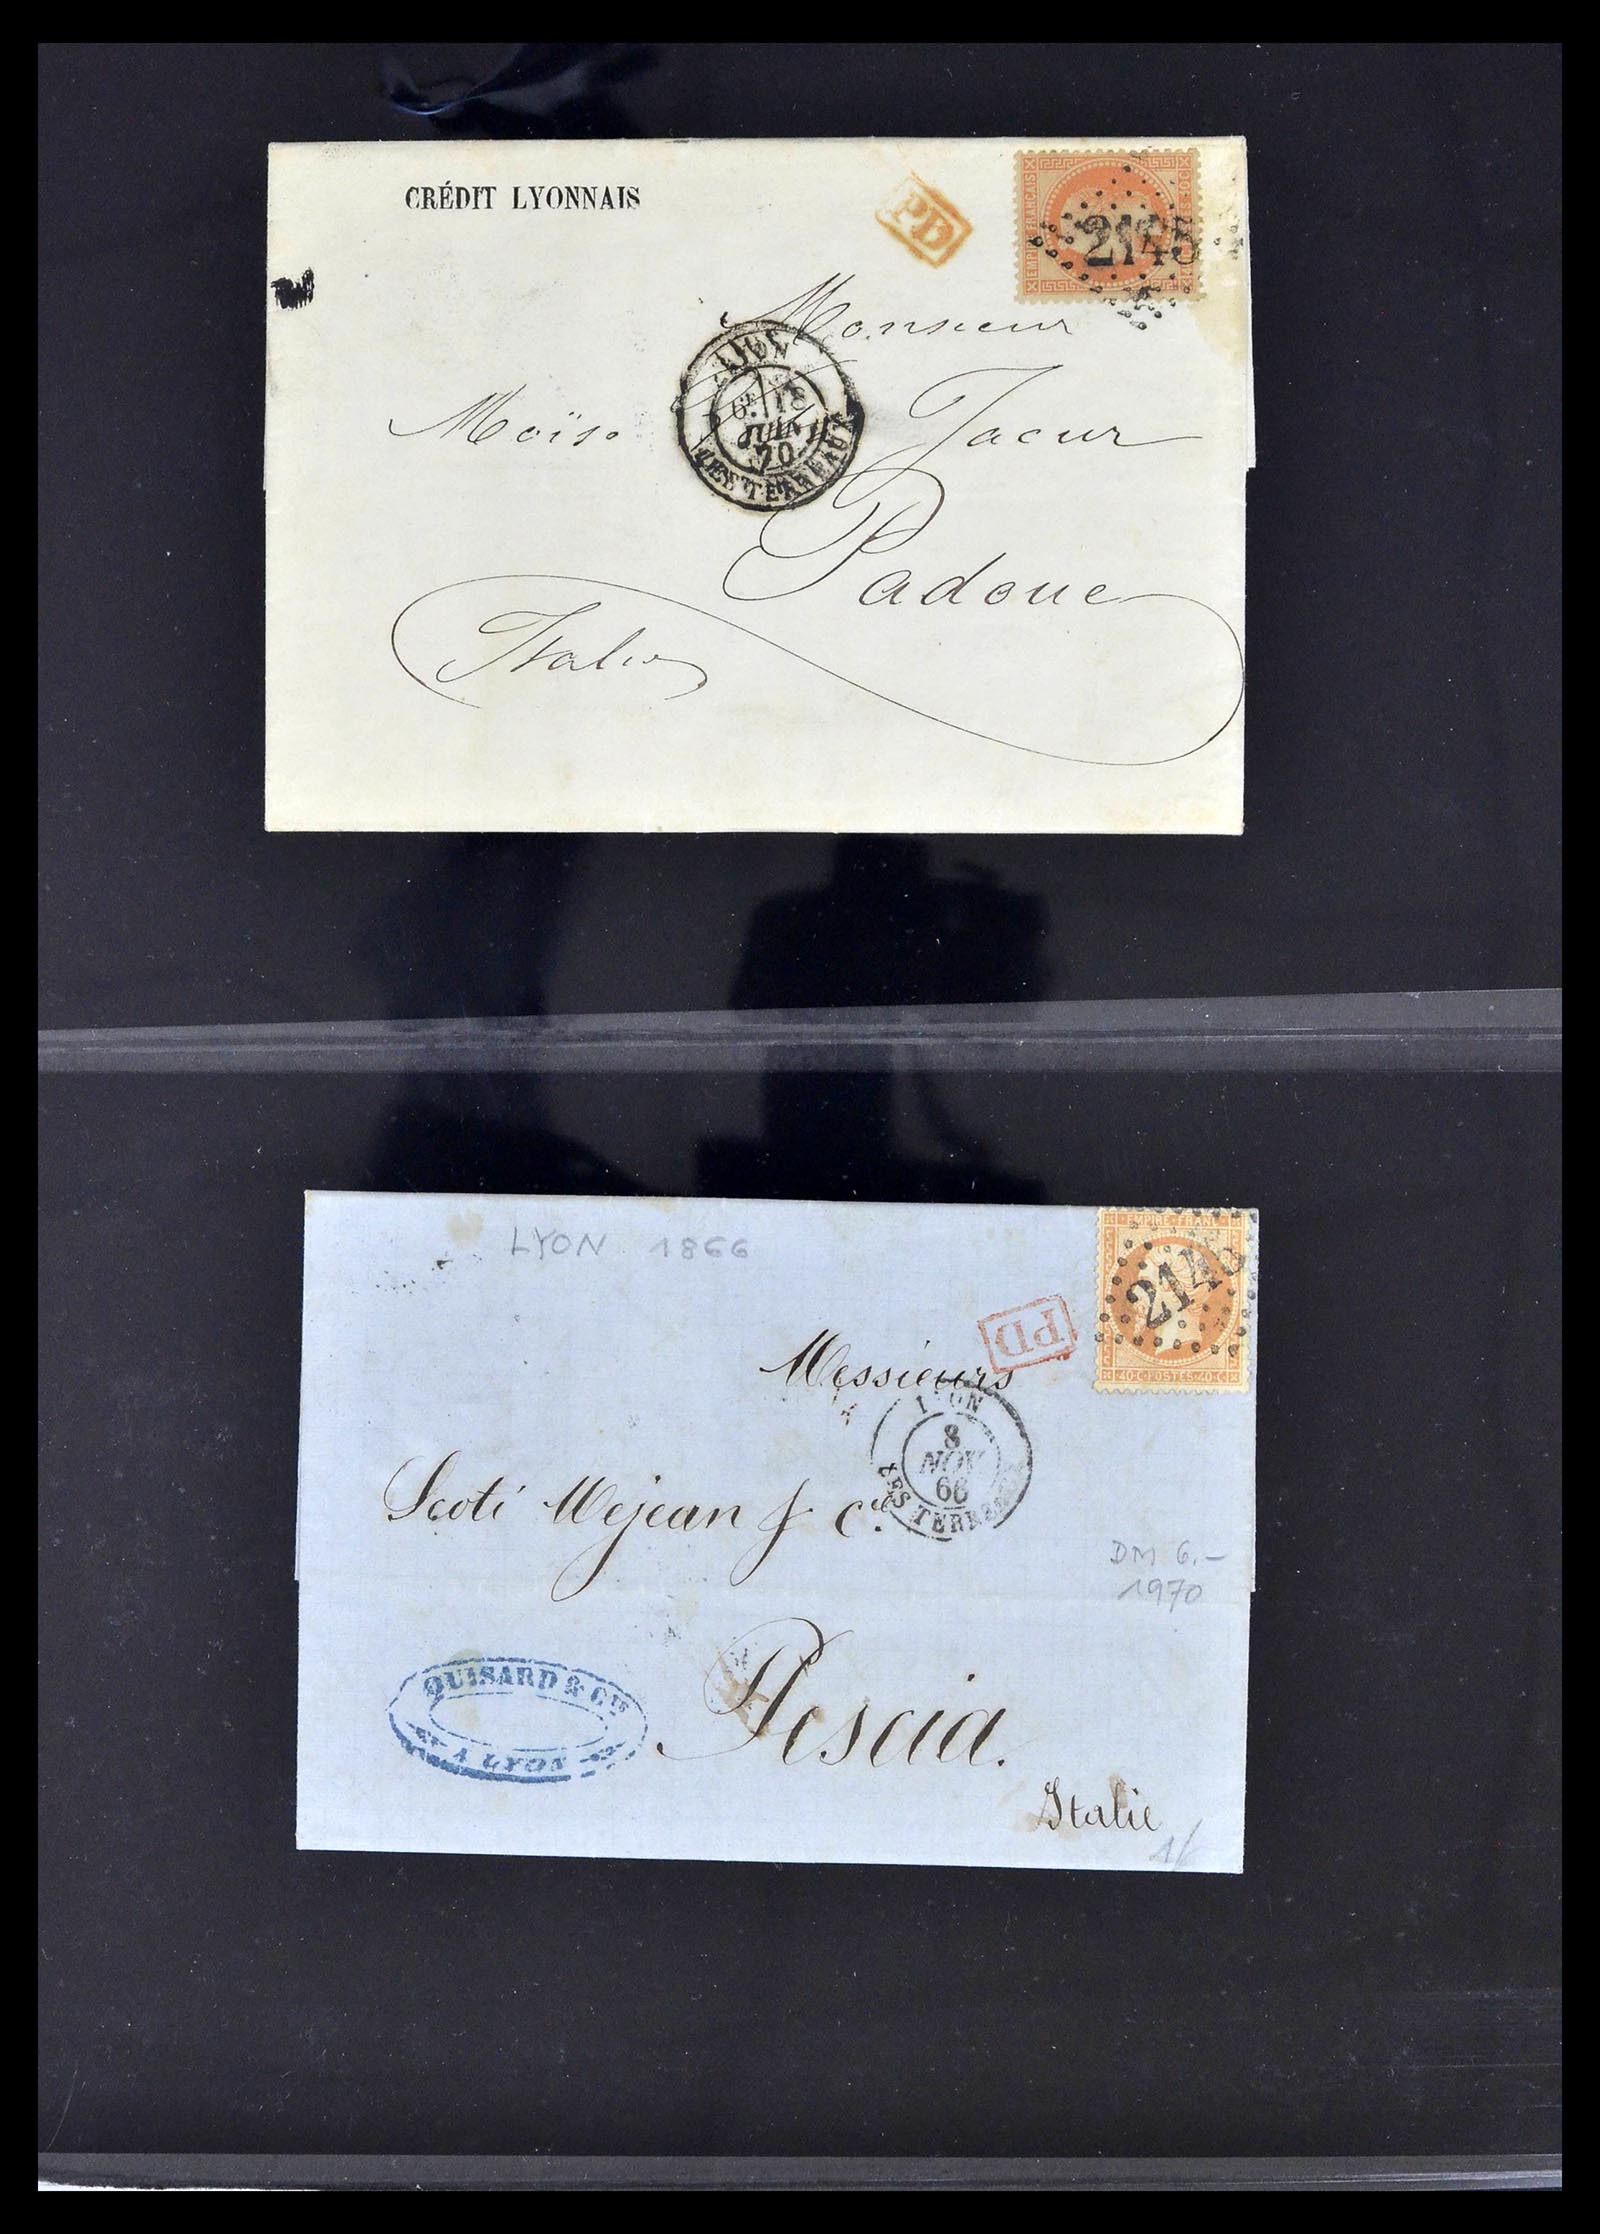 CRÉDIT LYONNAIS
PD
EMPIRE FRANÇAIS
2145
Monsieur
LYON
6E 18
JUIN
70
LES TERREAUX
Moïse Jacur
Padoue
Italie
LYON 1866
EMPIRE FRANC
2145
40 C POSTES 40 C
PD
Messieurs
LYON
8
NOV
66
LES TERREAUX
Scoti Mejean & Cie
DM 6.-
1970
QUISARD & CIE
A LYON
Pescia.
Italie